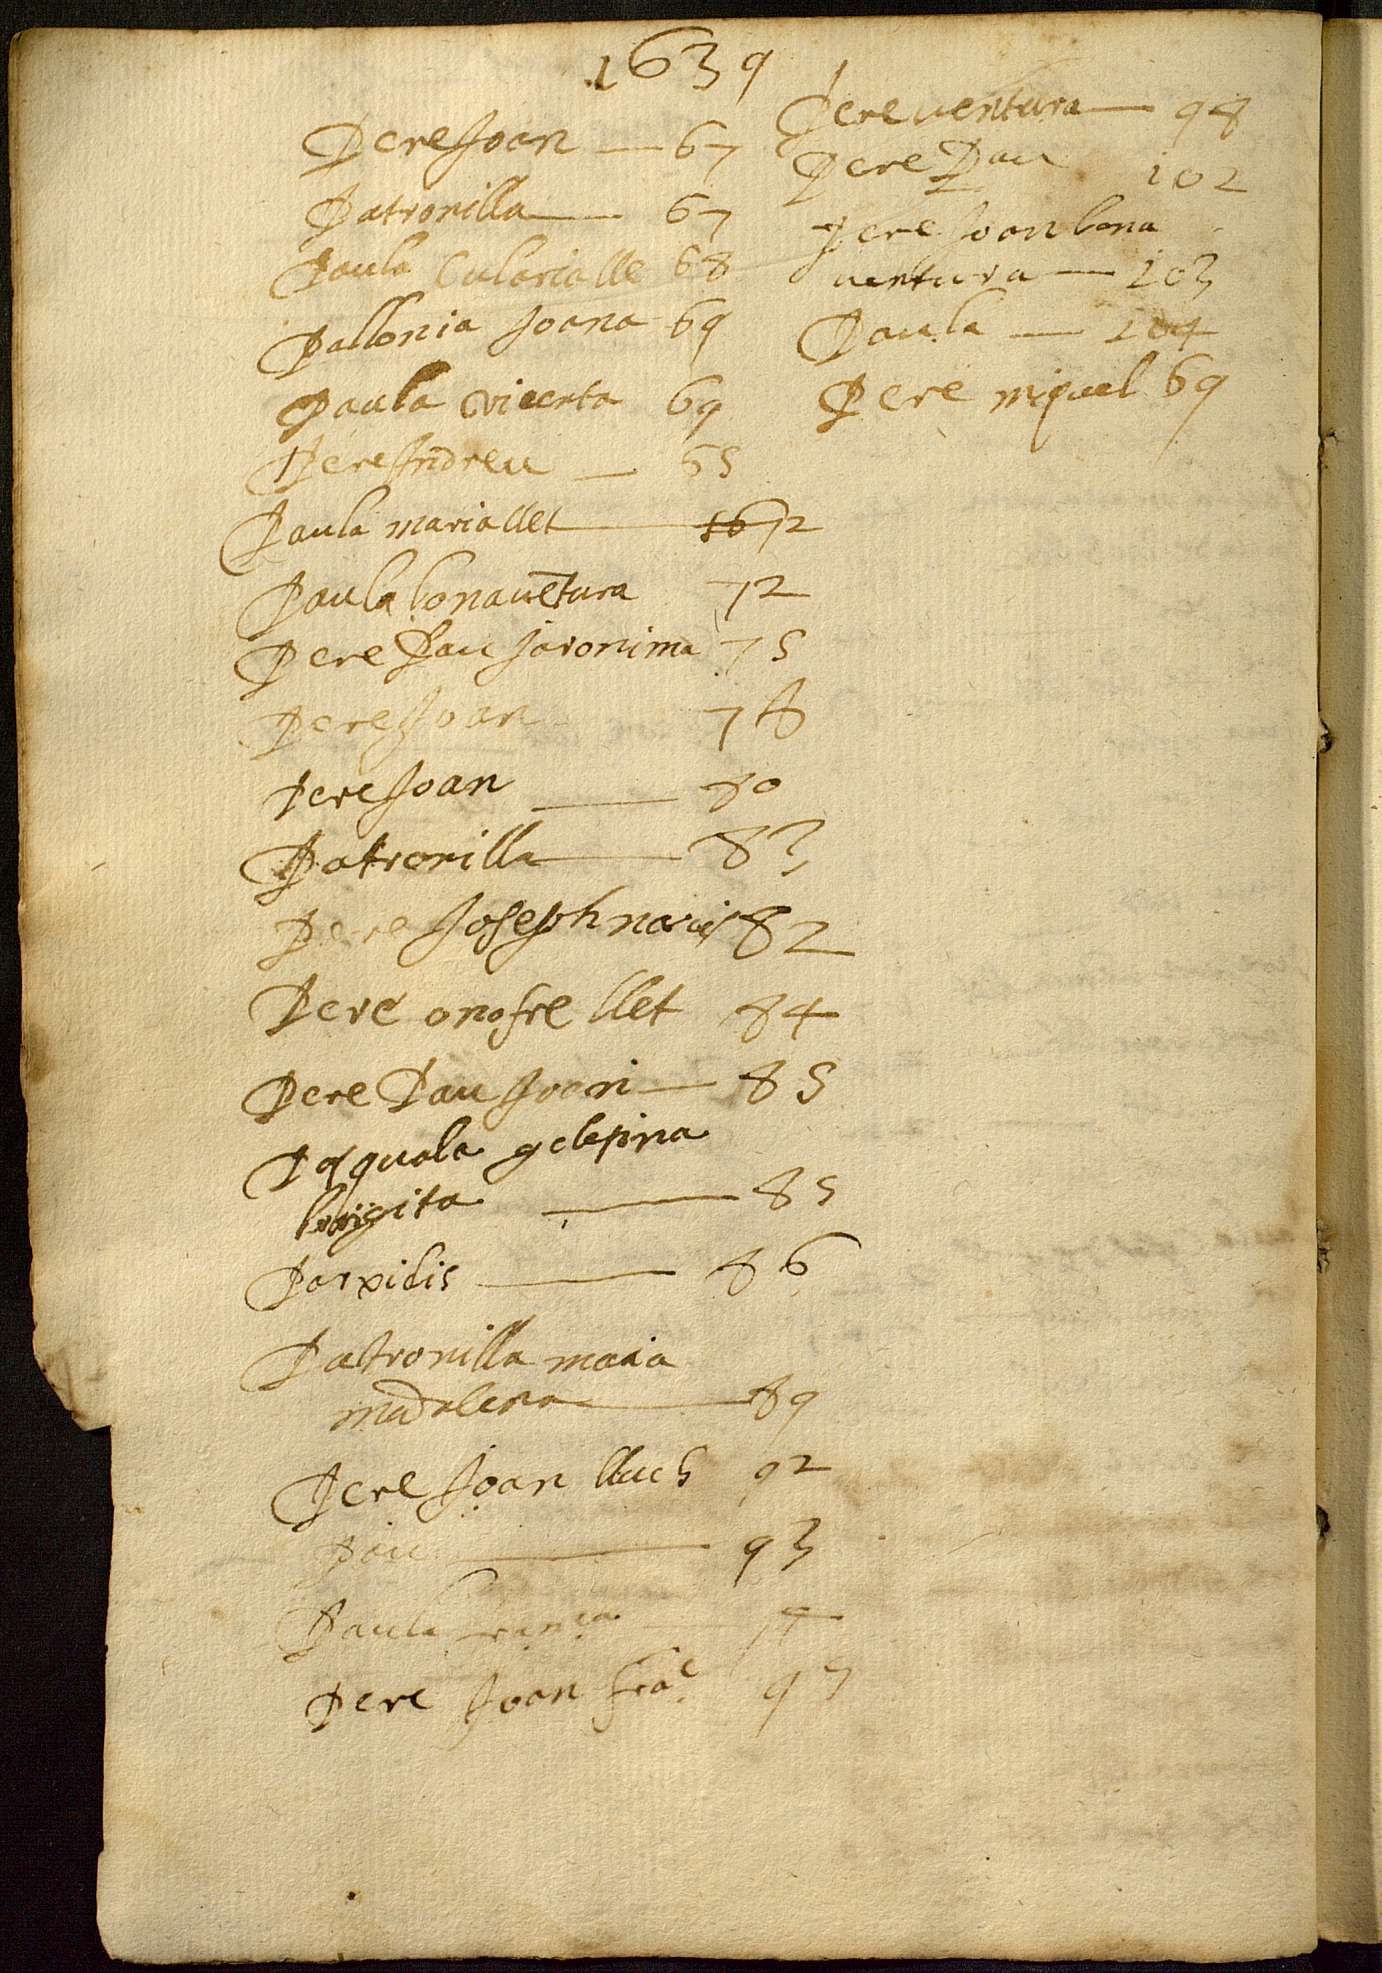 1639
Pere Joan — 67
Patronilla — 67
Paula Eularia lle 68
Pallonia Joana 69
Paula vicenta 69
Pere Andreu — 65
Paula maria llet — 72
Paula bonauētura 72
Pere Pau Jaronima 75
Pere Joan 78
Pere Joan — 80
Patronilla — 83
Pere Joseph narcis 82
Pere onofre llet 84
Pere Pau Joan — 85
Pasquala
brigita — 85
— 86
Patronilla maria
madalena — 89
Pere Joan lluch 92
Pau — 93
Paula
Pere Joan frac 95
Pere uentura — 98
Pere Pau 102
Pere Joan bona
uentura — 103
Paula — 104
Pere miquel 69